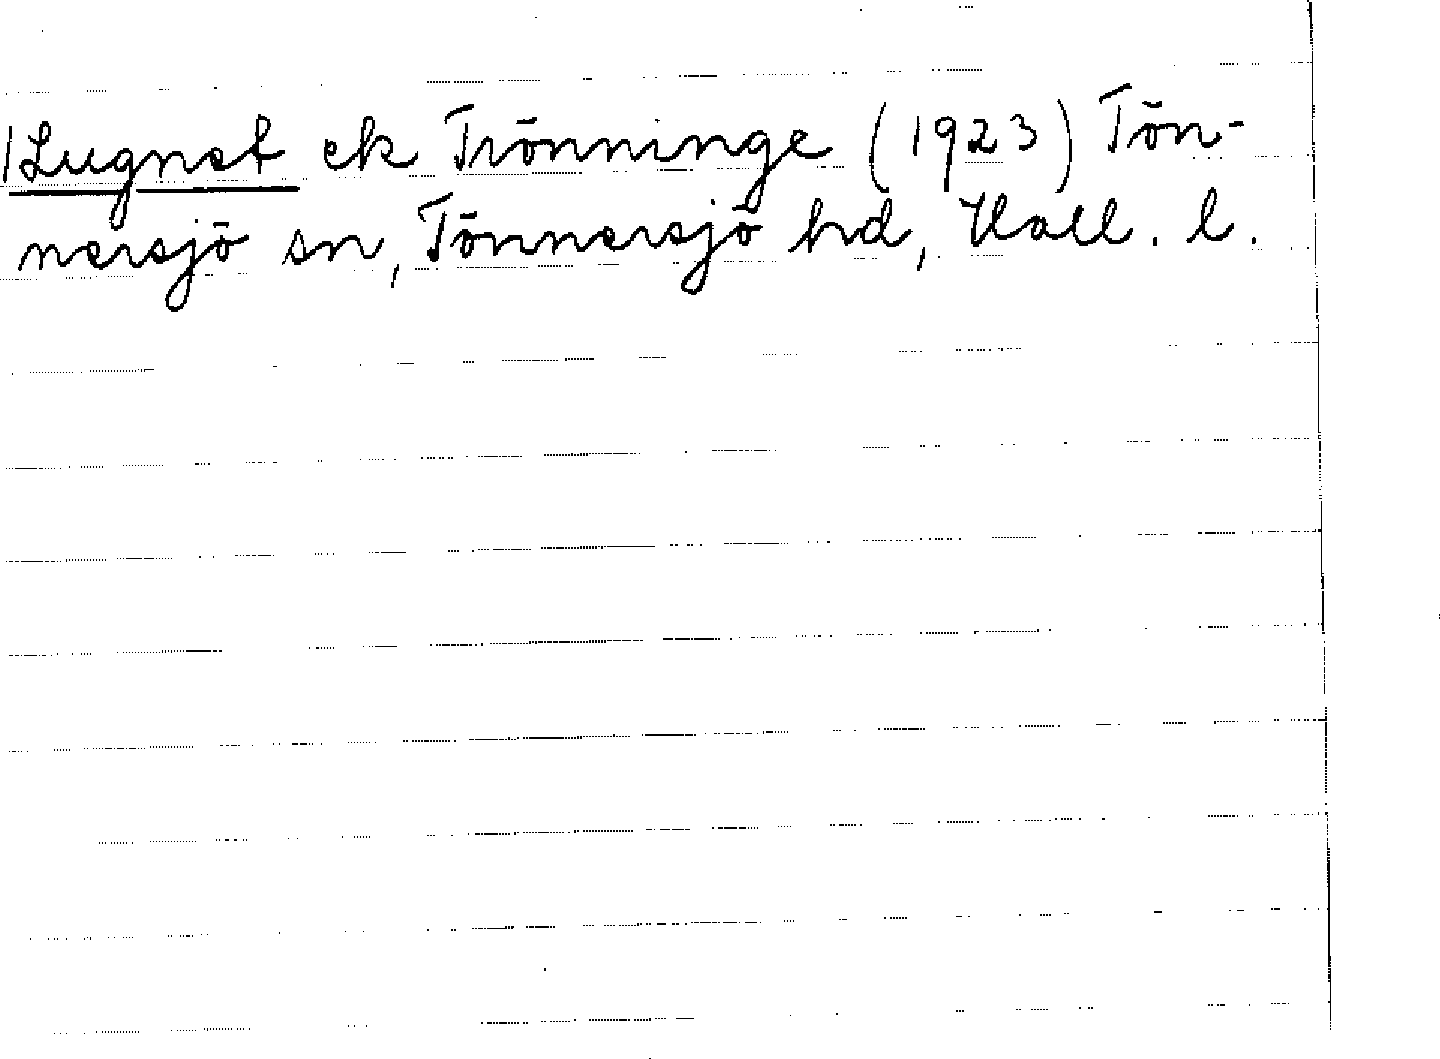 Lugnet ek Trönninge (1923) Tön-
nersjö sn, Tönnersjö hd, Hall. l.